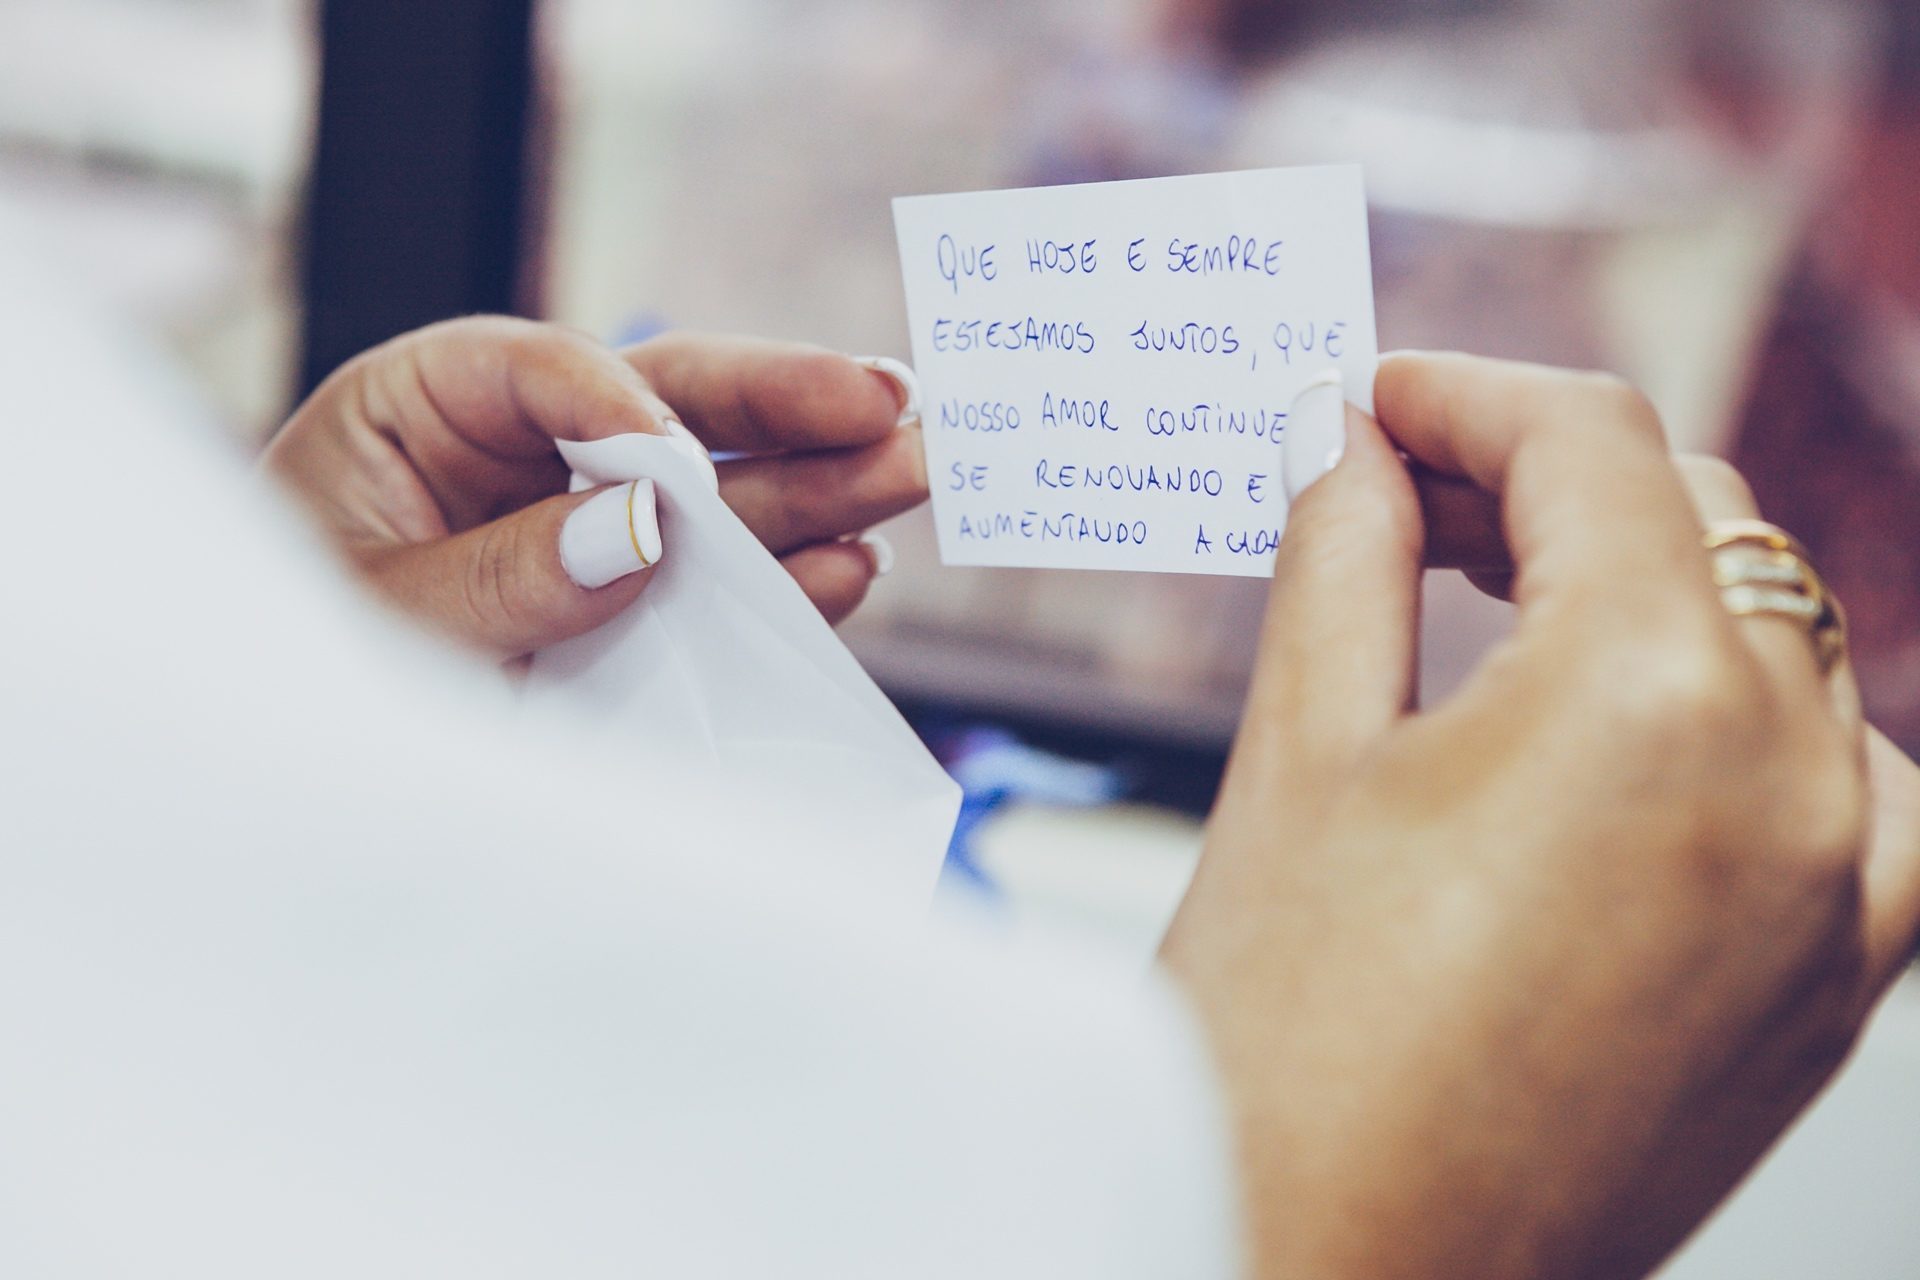 QUE HOJE E SEMPRE
ESTEJAMOS JUNTOS, QUE
NOSSO AMOR CONTINUE
SE RENOVANDO E
AUMENTANDO A CADA